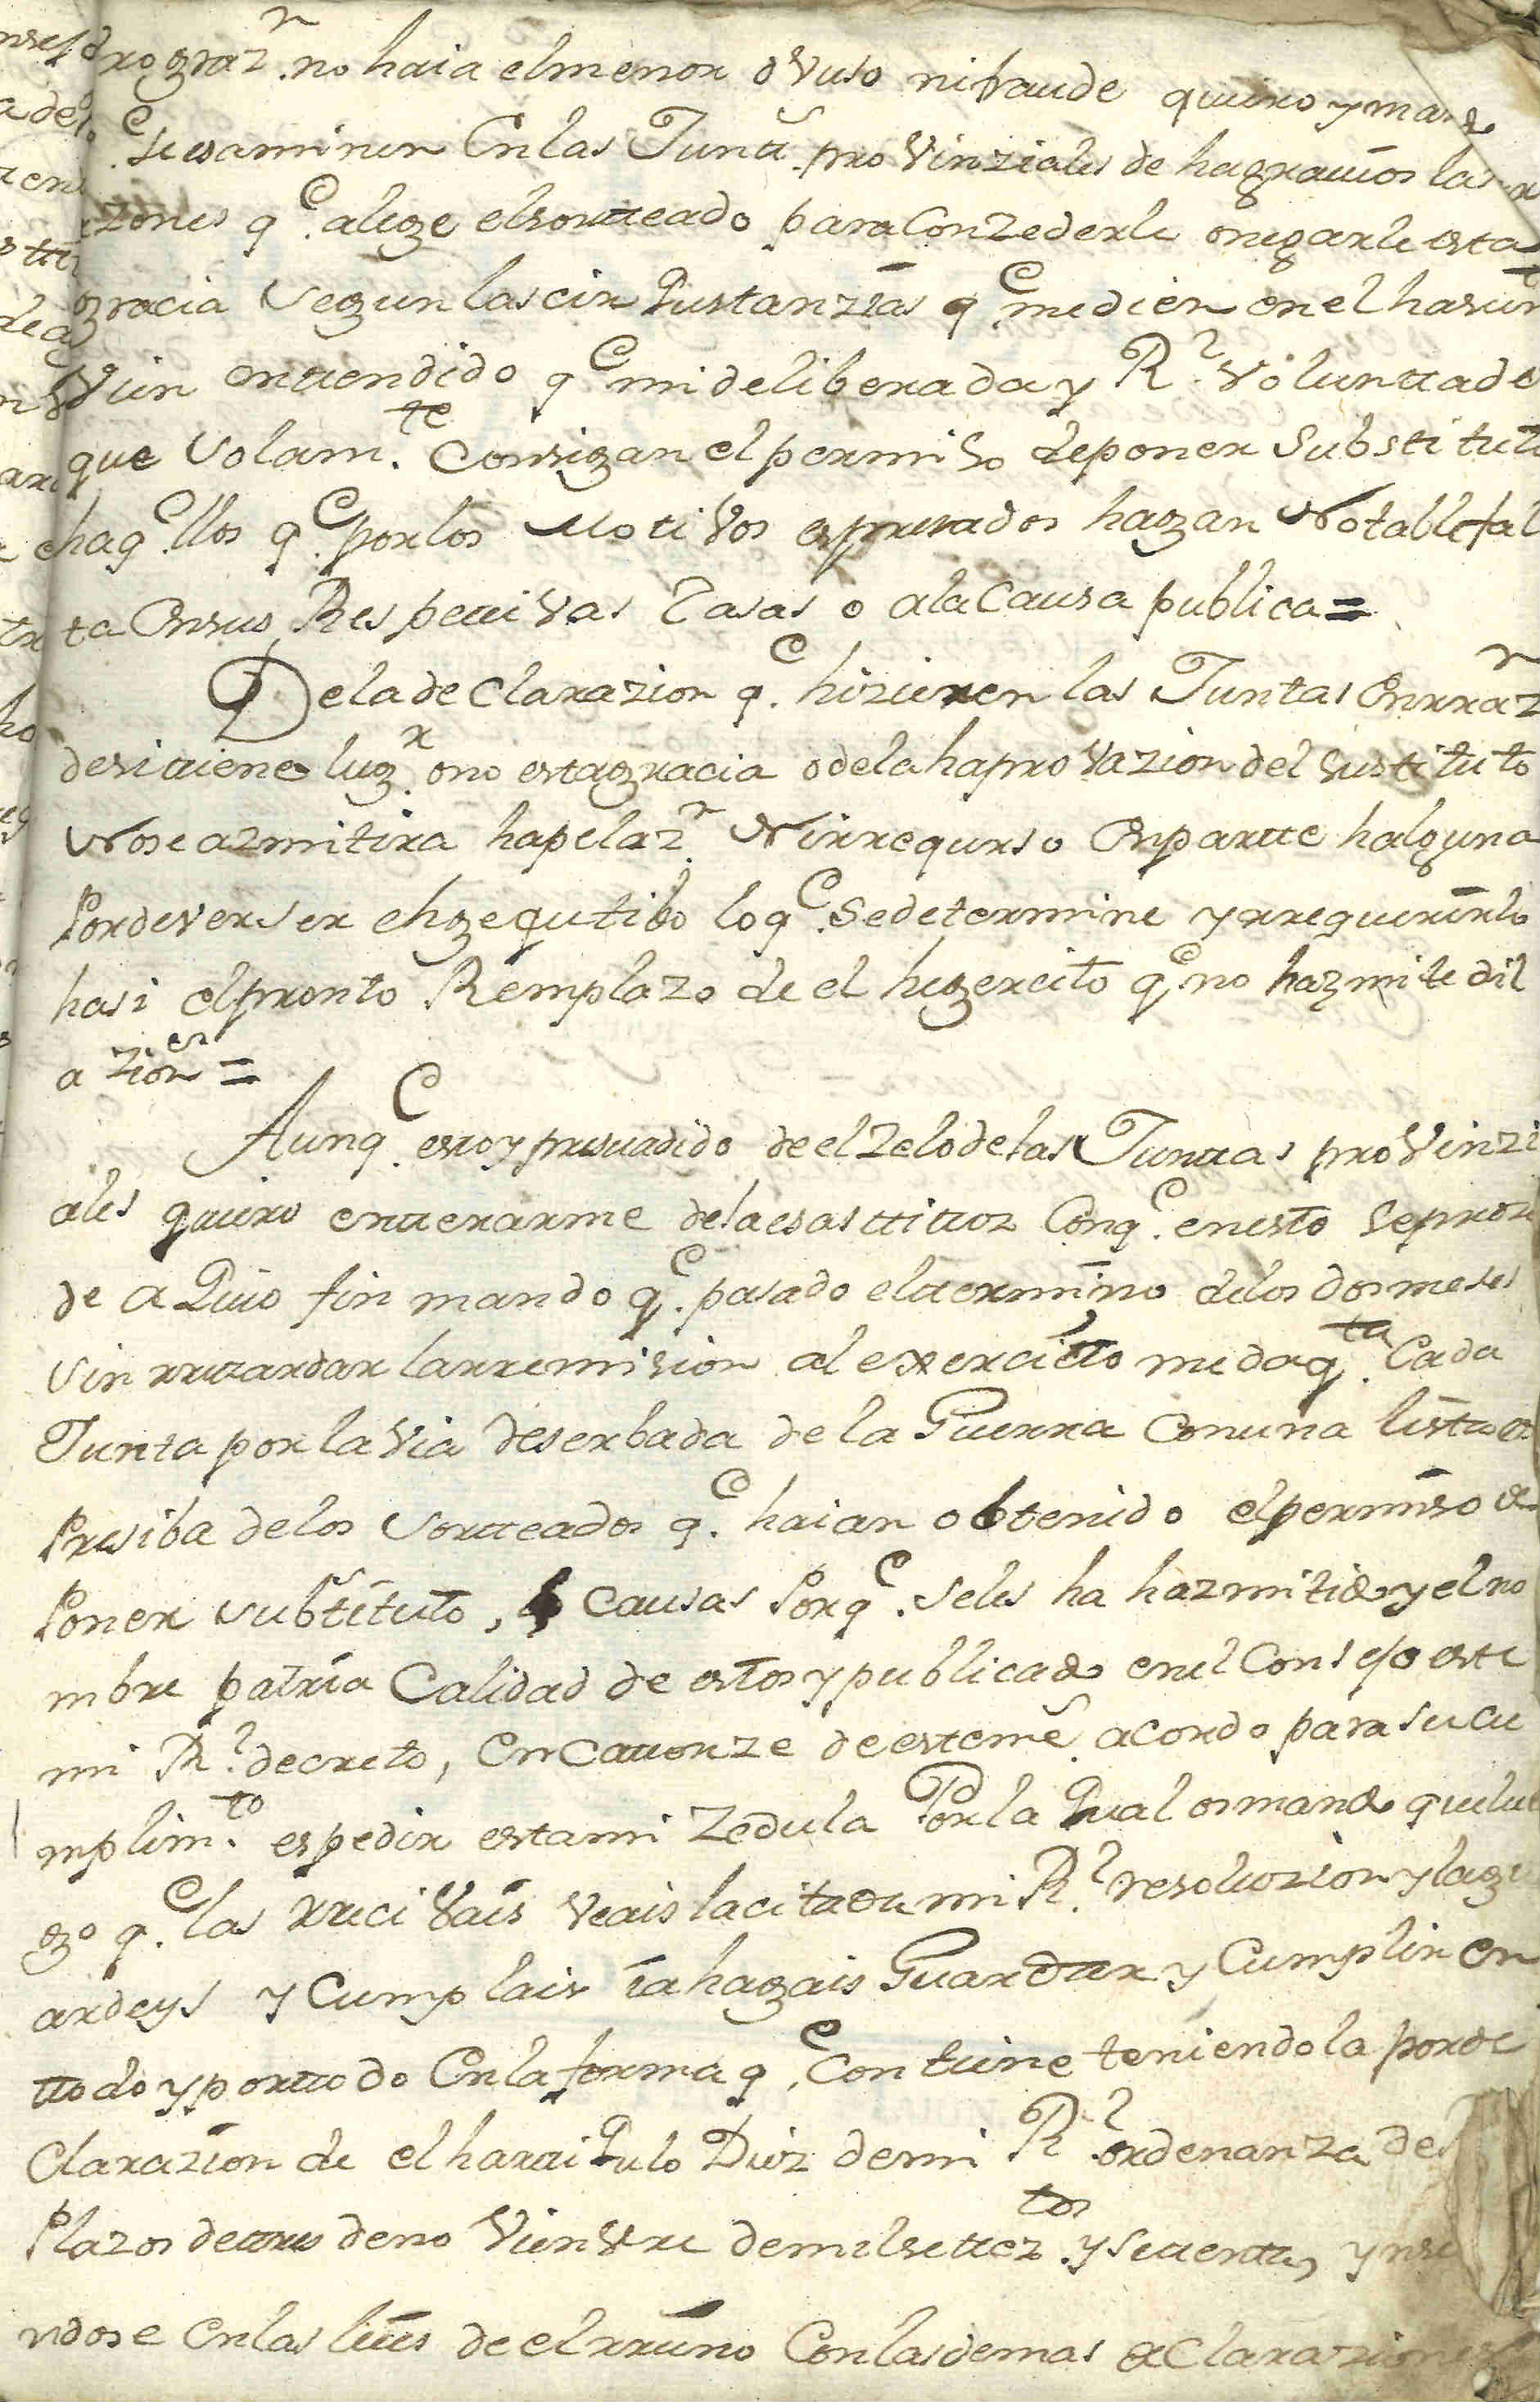 drograz.n no haia el menor ovuso ni fraude quiero y man
q.e se esaminen En las Junta.s proVinziales de hagravios las ra
zones q.e alege el sortteado para Conzederle o negarle esta
gracia segun las cirqustanzias q.e medien en el hasunt
Vien enttendido q.e mi deliberada y R.l Voluntta de
que solam.te Consigan el permiso de poner substitut
ha q.ellos q.e por los Motivos espresados hagan Notable fal
ta En sus Respecttivas Casas o a la Causa publica =
De la declarazion q.e hizieren las Juntas En rraz.n
de si ttiene lug.r o no esta gracia o de la haproVazion del sustituto
No se azmitira hapelaz.n Ni rrequrso En partte halguna
Por dever ser ehgequtibo lo q.e se determine y rrequerirlo
hasi el pronto Remplazo de el hegercito q.e no hazmite dil
azion =
Aunq.e estoy presuadido de el Zelo de las Junttas proVinzi
ales quiero entterarme de la esasttittuz Con q.e en esto se proze
de a Quio fin mando q.e pasado el ttermino de los dos meses
sin rretardar la rremision al exercitto me da q.ta Cada
Junta por la Via deserbada de la Guerra Con una lista es
Presiba de los sortteados q.e haian obtenido el permiso de
Poner subtituto, Causas Por q.e se les ha hazmitido y el no
mbre patria Calidad de estos y publicado en el Consejo este
mi R.l decreto, En Cattorze de este mes acordo para su cu
mplim.to espedir esta mi Zedula Por la Qual os mando que lue
go q.e la rrecivais Veais la citada mi R.l resoluzion y la gu
ardeys y Cumplais ia hagais Guardar y Cumplir en
ttodo y por ttodo En la forma q.e Contiene teniendola por de
Clarazion de el hartiqulo Diez de mi R.l ordenanza de
Plazos de tres de noVienVre de mil settez.tos y settenta, y nse
ndose En las leies de el rreino Con las demas declaraziones